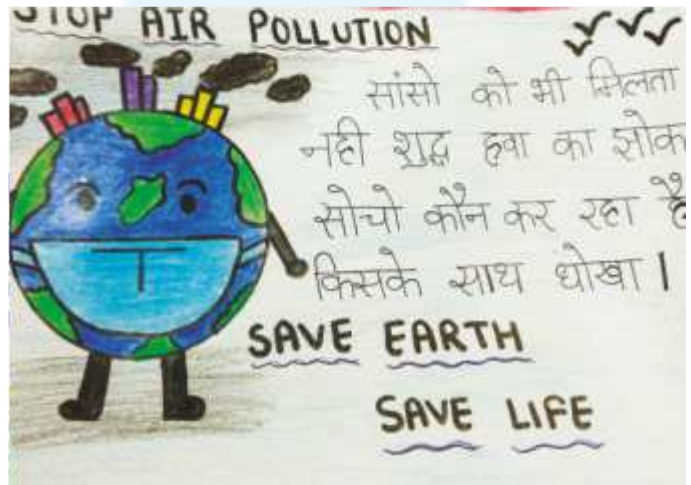 STOP AIR POLLUTION
सांसो को भी मिलता
नही शुद्ध हवा का झोक
सोचो कौन कर रहा है
किसके साथ धोखा।
SAVE EARTH
SAVE LIFE